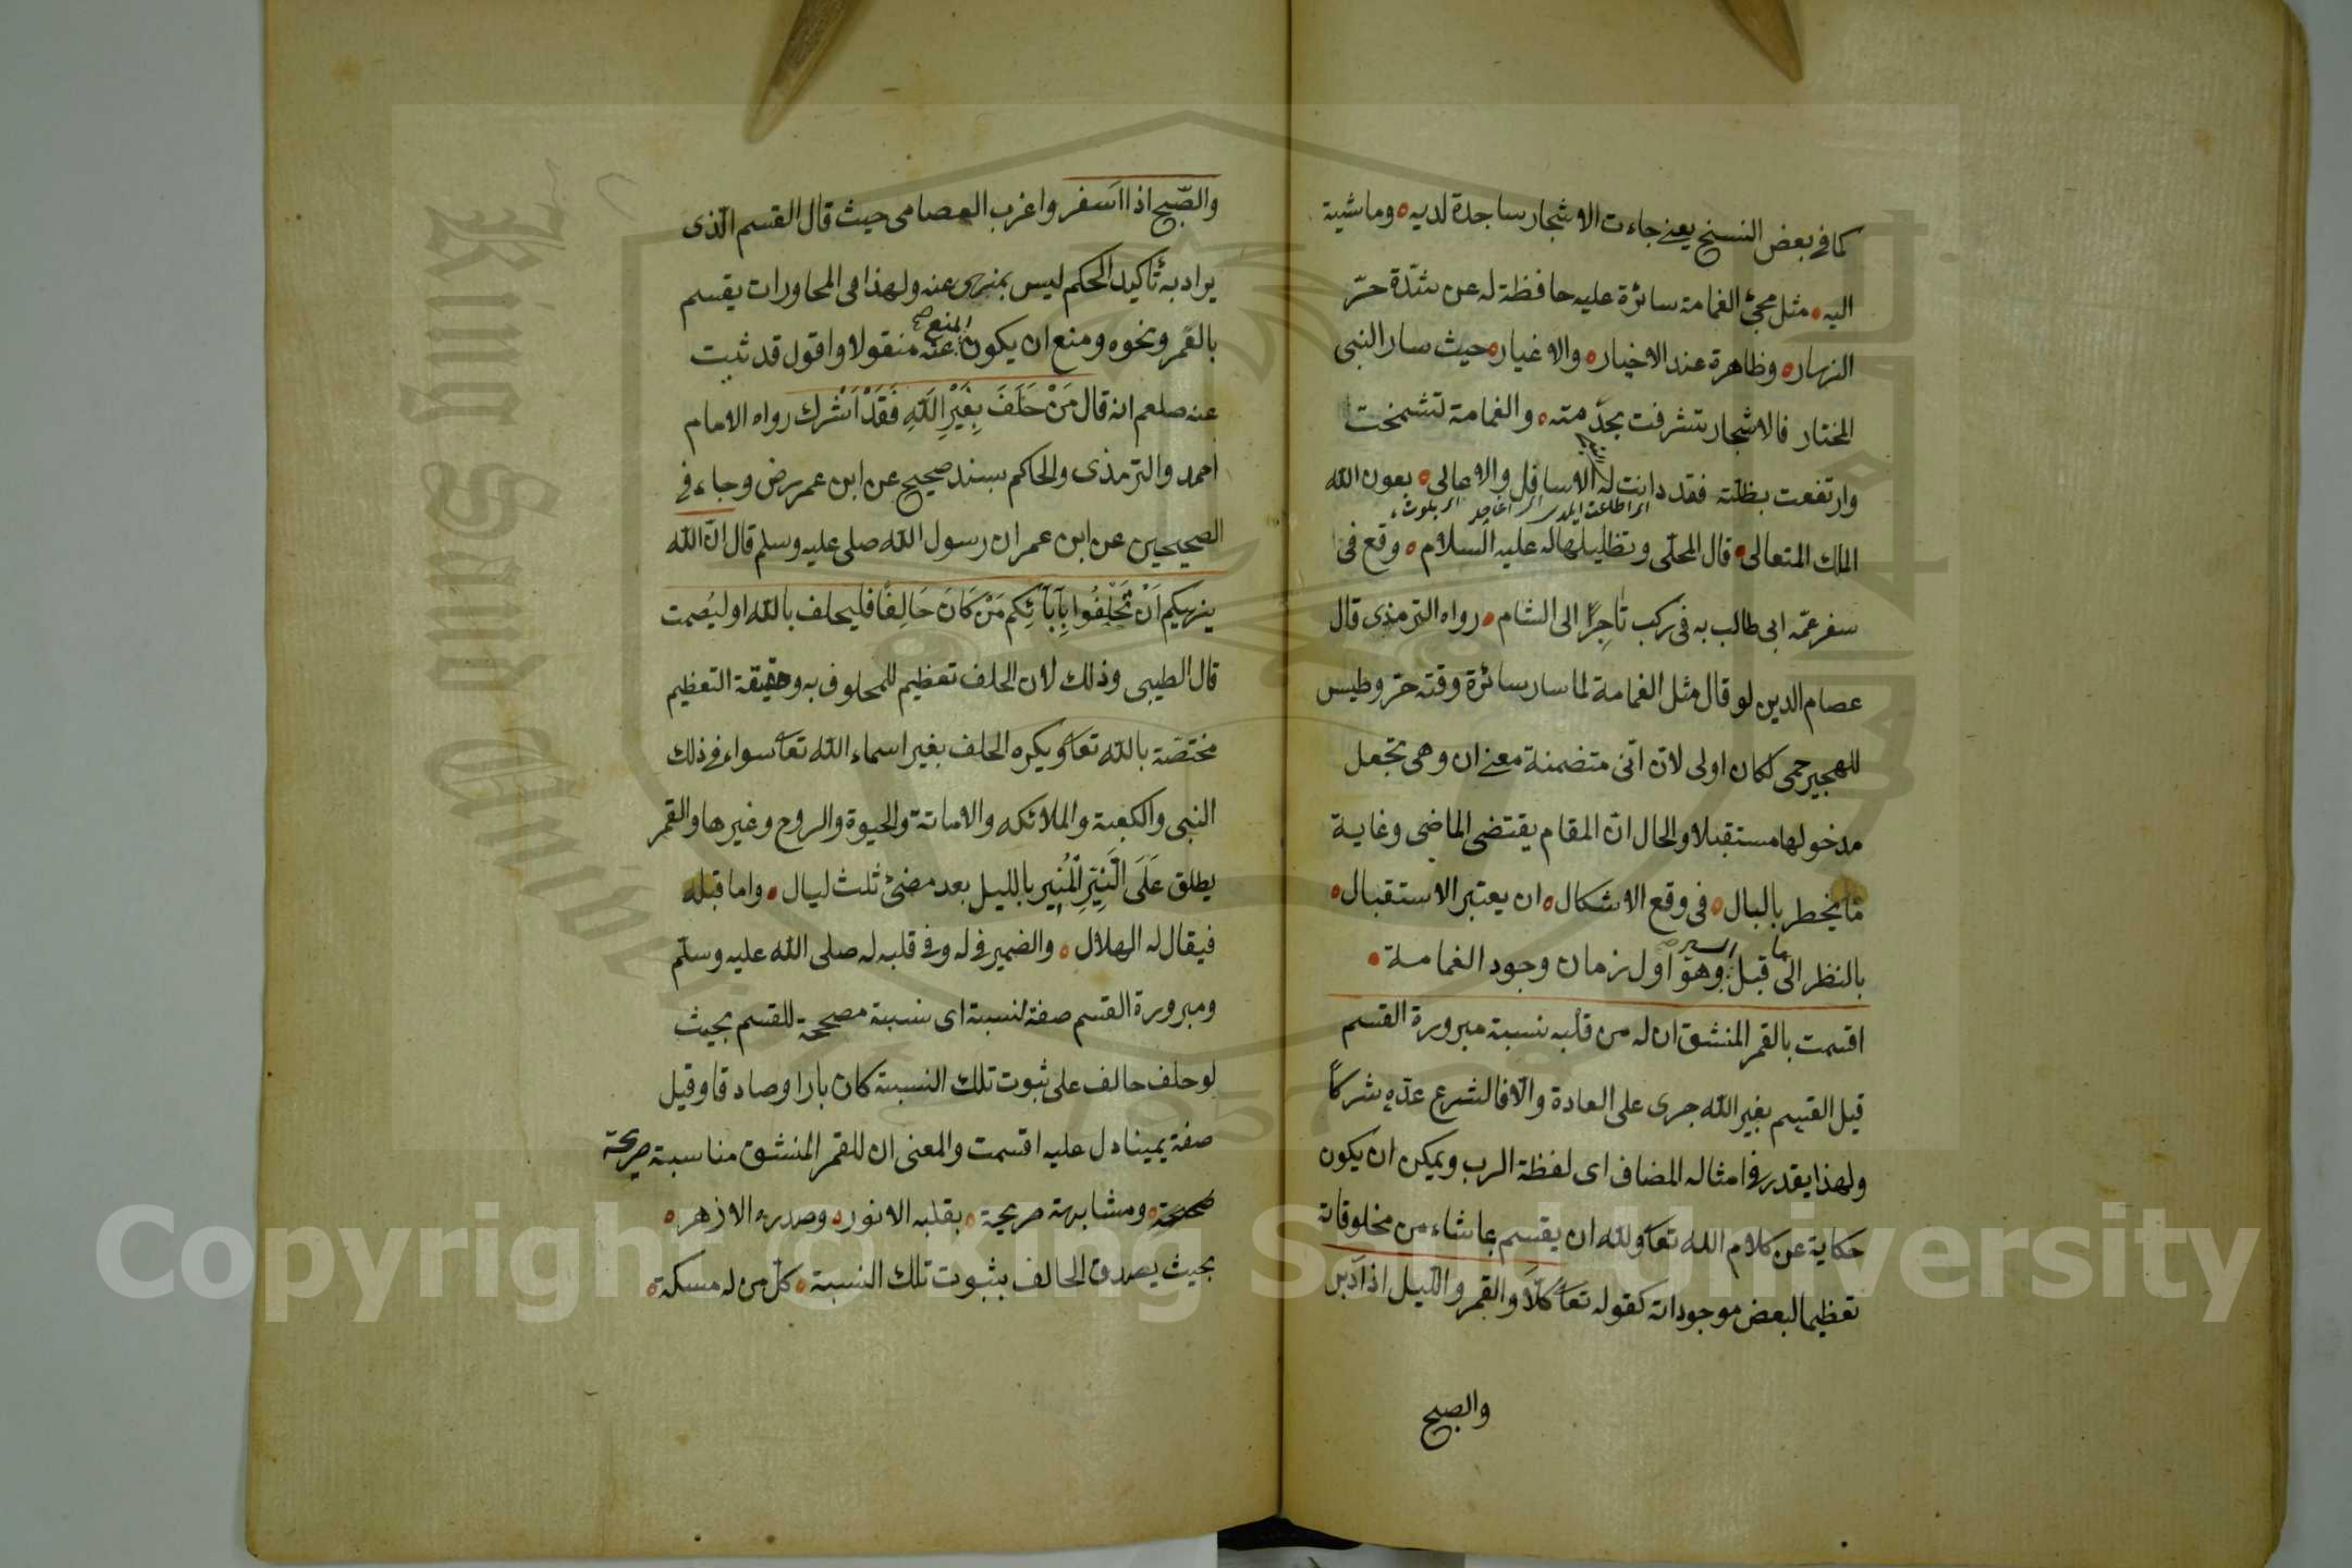 كما في بعض النسخ يعني جاءت الاشجار ساجدة لديه وماشية
اليه مثل مجئ الغمامة سائرة عليه حافظة له عن شدّة حرّ
النهار وظاهرة عند الاخيار والاغيار حيث سار النبي
المختار فالاشجار تشرفت بجدمته والغمامة تشمخت
وارتفعت بظلته فقد دانت له الاسافل والاعالي بعون الله
الملك المتعالى قال المحلّى وتظليلها له عليه السلام وقع فى
سفر عمّه ابى طالب به فى ركب تاجرًا الى الشام رواه الترمذى قال
عصام الدين لو قال مثل الغمامة لما سار سائرة وقته حرّ وطيس
للهجير حمى لكان اولى لانّ انّى متضمنة معنى ان وهى تجعل
مدخولها مستقبلا والحال انّ المقام يقتضى الماضى وغاية
ما يخطر بالبال فى وقع الاشكال ان يعتبر الاستقبال
بالنظر الى ما قبل السير وهو اول زمان وجود الغمامة
اقسمت بالقمر المنشق ان له من قلبه نسبة مبرورة القسم
قيل القسم بغير الله جرى على العادة والّا فالشرع عدّه شركاً
ولهذا يقدر فى امثاله المضاف اى لفظة الرب ويمكن ان يكون
حكاية عن كلام الله تعا ولله ان يقسم بما شاء من مخلوقاته
تعظيما لبعض موجوداته كقوله تعا كلّا والقمر والّيل اذ ادبر
والصبح
والصّبح اذا اسفر واغرب العصامى حيث قال القسم الّذى
يراد به تاكيد الحكم ليس بمنهى عنه ولهذا فى المحاورات يقسم
بالقمر ونحوه ومنع ان يكون المنع عنه منقولا واقول قد ثبت
عنه صلعم انه قال مَنْ حَلَفَ بِغَيْرِ اللهِ فَقَدْ اَشْرك رواه الامام
احمد والترمذى والحاكم بسند صحيح عن ابن عمر رض وجاء فى
الصحيحين عن ابن عمر ان رسول الله صلى عليه وسلم قال انّ الله
ينهيكم اَنْ تَحْلِفُوا بِآبَآئِكم مَنْ كَانَ حَالِفًا فليحلف بالله او ليَصمت
قال الطيبى وذلك لان الحلف تعظيم للمحلوف به وحقيقة التعظيم
مختصّة بالله تعا ويكره الحلف بغير اسماء الله تعا سواء فى ذلك
النبى والكعبة والملائكه والامانة والحيوة والروح وغيرها والقمر
يطلق عَلَى النّيِّرِ الْمُنِير بالليل بعد مضىّ ثلث ليال واما قبله
فيقال له الهلال والضمير فى له وفى قلبه له صلى الله عليه وسلّم
ومبرورة القسم صفة لنسبة اى نسبة مصححة للقسم بحيث
لو حلف حالف على ثبوت تلك النسبة كان بارا وصادقا وقيل
صفة يمينا دل عليه اقسمت والمعنى ان للقمر المنشق مناسبة صريحة
صحيحة ومشابهة صريحة بقلبه الانور وصدره الازهر
بحيث يصدق الحالف بثبوت تلك النسبة كلّ من له مسكة
King Saud University
1957
Copyright © King Saud University